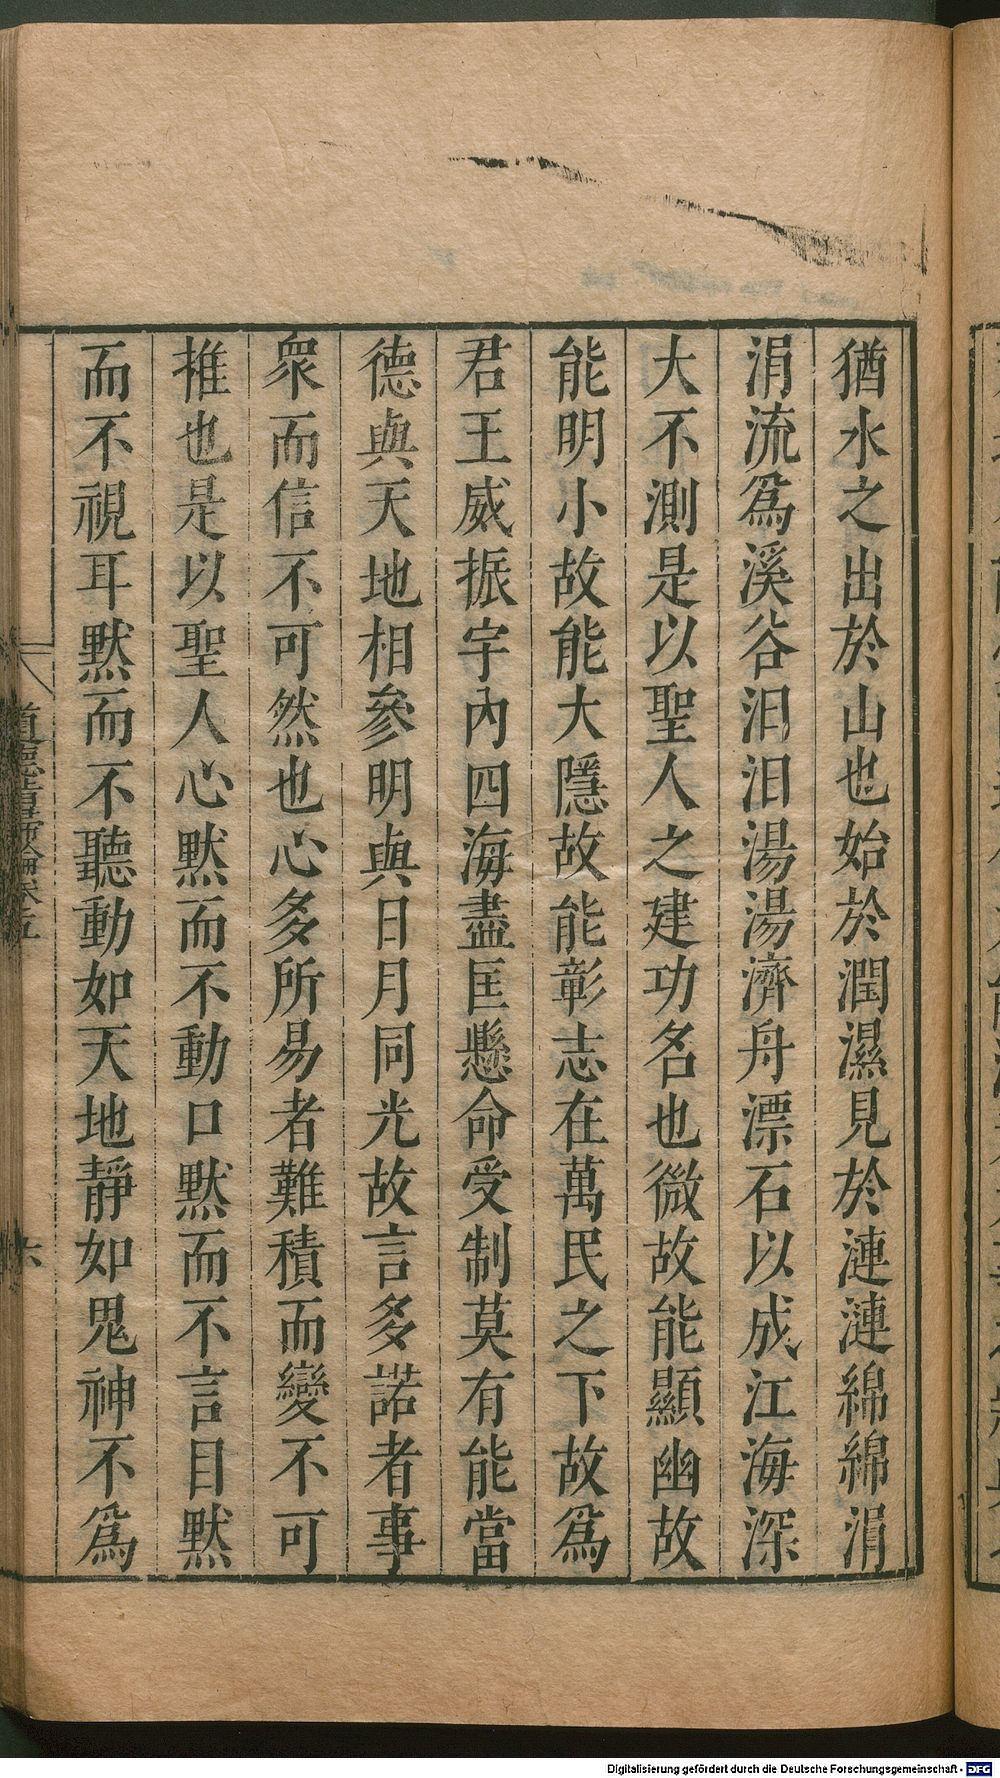 猶水之出於山也始於潤濕見於漣漣綿綿涓
涓流爲溪谷汨汨湯湯濟舟漂石以成江海深
大不測是以聖人之建功名也微故能顯幽故
能明小故能大隱故能彰志在萬民之下故爲
君王威振宇內四海盡匡懸命受制莫有能當
德與天地相參明與日月同光故言多諾者事
衆而信不可然也心多所易者難積而變不可
推也是以聖人心默而不動口默而不言目默
而不視耳默而不聽動如天地靜如鬼神不爲
道德指歸論卷五
六
Digitalisierung gefördert durch die Deutsche Forschungsgemeinschaft - DFG